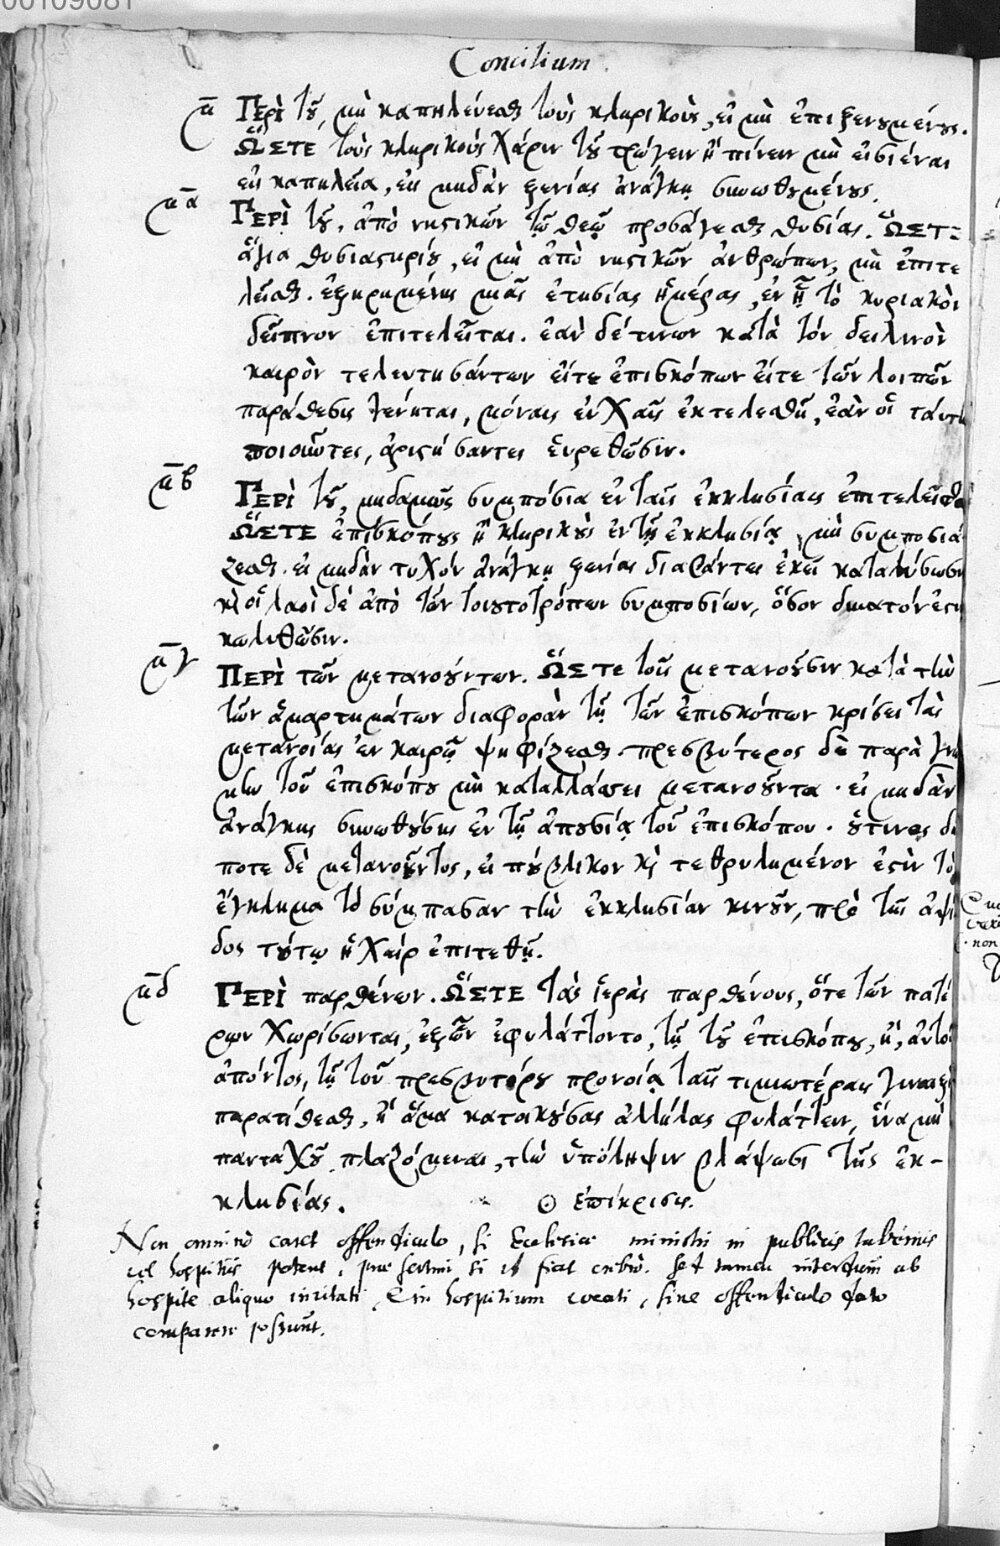 00109081
Concilium.
μ Περὶ τοῦ, μὴ καπηλεύεσθαι τοὺς κληρικοὺς, εἰ μὴ ἐπιξενουμένους.
ὭΣΤΕ τοὺς κληρικοὺς χάριν τοῦ τρώγειν ἢ πίνειν μὴ εἰσιέναι
εἰς καπηλεῖα, εἰ μηδὰν ξενίας ἀνάγκῃ συνωθουμένους.
μα ΠΕΡῚ τοῦ, ἀπὸ νηστικῶν τῷ θεῷ προσάγεσθαι θυσίας. ὭΣΤΕ
ἅγια θυσιαστηρίου, εἰ μὴ ἀπὸ νηστικῶν ἀνθρώπων, μὴ ἐπιτε
λεῖσθαι. ἐξῃρημένης μιᾶς ἐτησίας ἡμέρας, ἐν ᾗ τὸ κυριακὸν
δεῖπνον ἐπιτελεῖται. ἐὰν δέ τινων κατὰ τὸν δειλινὸν
καιρὸν τελευτησάντων εἴτε ἐπισκόπων εἴτε τῶν λοιπῶν
παράθεσις γένηται, μόναις εὐχαῖς ἐκτελεσθῇ, ἐὰν οἱ ταύτην
ποιοῦντες, ἀριστήσαντες εὑρεθῶσιν.
μβ ΠΕΡῚ τοῦ, μηδαμῶς συμπόσια ἐν ταῖς ἐκκλησίαις ἐπιτελεῖσθαι
ὭΣΤΕ ἐπισκόπους ἢ κληρικοὺς ἐν τῇ ἐκκλησίᾳ μὴ συμποσιά
ζεσθαι. εἰ μηδὰν τυχὸν ἀνάγκῃ ξενίας διαβάντες ἐκεῖ καταλύσωσιν
καὶ οἱ λαοὶ δὲ ἀπὸ τῶν τοιουτοτρόπων συμποσίων, ὅσον δυνατόν ἐστι
κωλυθῶσιν.
μγ ΠΕΡῚ τῶν μετανοούντων. ὭΣΤΕ τοῖς μετανοοῦσιν κατὰ τὴν
τῶν ἁμαρτημάτων διαφορὰν τῇ τῶν ἐπισκόπων κρίσει τὰς
μετανοίας ἐν καιρῷ ψηφίζεσθαι. πρεσβύτερος δὲ παρὰ γνώ
μην τοῦ ἐπισκόπου μὴ καταλλάσσει μετανοοῦντα. εἰ μηδὰν
ἀνάγκης συνωθούσης ἐν τῇ ἀπουσίᾳ τοῦ ἐπισκόπου. οὕτινος δή
ποτε δὲ μετανοοῦντος, εἰ πούβλικον καὶ τεθρυλημένον ἐστὶν τὸ
ἔγκλημα τὸ σύμπασαν τὴν ἐκκλησίαν κινοῦν, πρὸ τῆς ἀψί
δος τούτῳ ἡ χεὶρ ἐπιτεθῇ.
μδ ΠΕΡῚ παρθένων. ὭΣΤΕ τὰς ἱερὰς παρθένους, ὅτε τῶν πατέ
ρων χωρίσωνται, ἐξ ὧν ἐφυλάττοντο, τῇ τοῦ ἐπισκόπου, ἢ, αὐτοῦ
ἀπόντος, τῇ τοῦ πρεσβυτέρου προνοίᾳ ταῖς τιμιωτέραις γυναιξὶ
παρατίθεσθαι, ἢ ἅμα κατοικούσας ἀλλήλας φυλάττειν, ἵνα μὴ
πανταχοῦ πλαζόμεναι, τὴν ὑπόληψιν βλάψωσι τῆς ἐκ-
κλησίας. ἐπίκρισις.
Non omninò caret offendiculo, si Ecclesiae ministri in publicis tabernis
vel hospitiis potent, praesertim si id fiat crebrò. Sed tamen interdum ab
hospite aliquo invitati, & in hospitium vocati, sine offendiculo dato
comparere possunt.